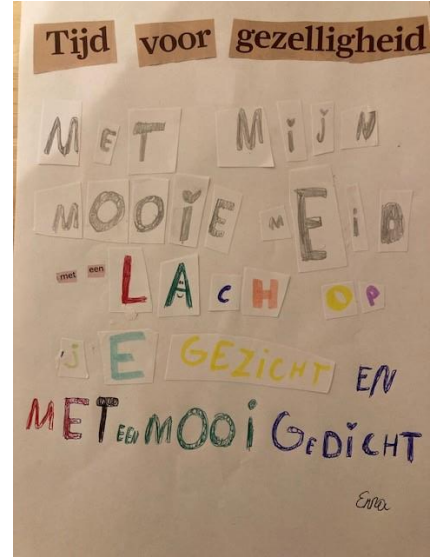 Tijd voor gezelligheid
MET MijN
MOOiE MEiD
met een LACH OP
jE GEZiCHT EN
MET EEN MOOi GEDiCHT
Enna